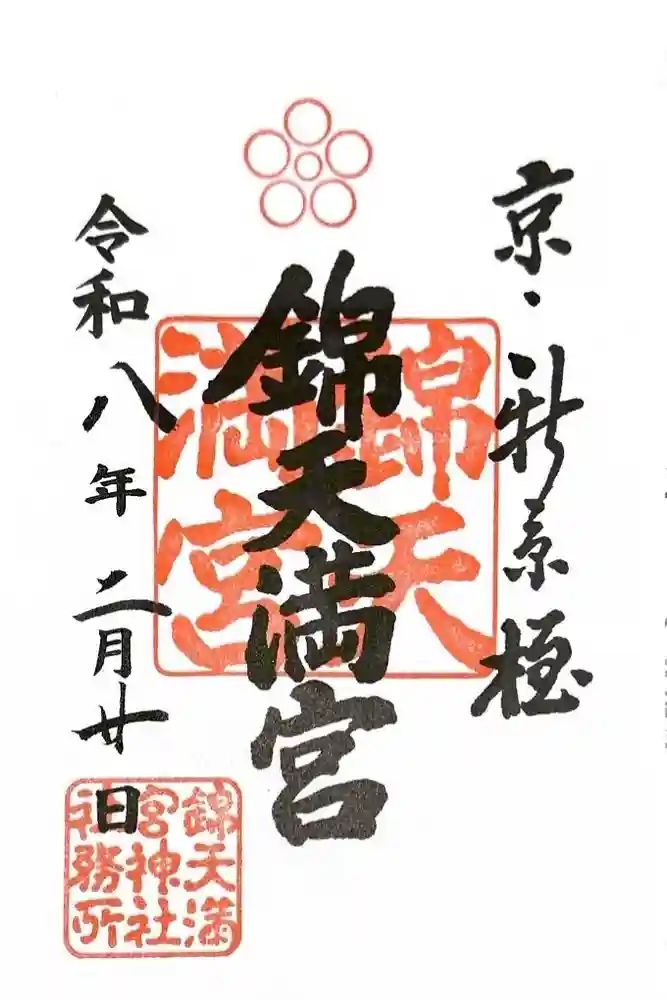 京・新京極
錦天満宮
錦天
満宮
令和八年二月廿日
錦天満
宮神社
社務所